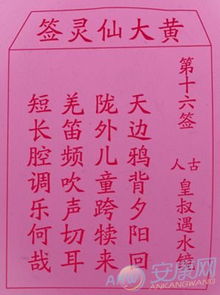 黄大仙灵签
第十六签
古人 皇叔遇水镜
天边鸦背夕阳回
陇外儿童跨犊来
羌笛频吹声切耳
短长腔调乐何哉
安康网
ANKANGWANG